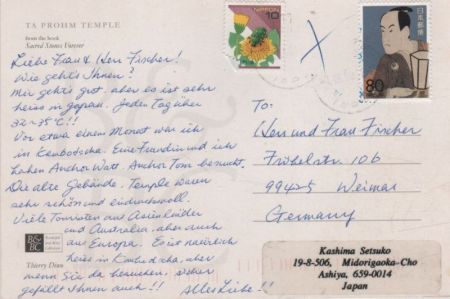 TA PROHM TEMPLE
from the book
Sacred Stones Forever
Liebe Frau & Herr Fischer!
Wie geht's Ihnen?
Mir geht's gut. aber es ist sehr
heiss in Japan. Jeden Tag über
32~35℃!!
Vor etwa einem Monat war ich
in Kambodscha. Eine Freundin und ich
haben Anchor Watt. Anchor Tom besucht.
Die alte Gebände. Temple waren
sehr schön und eindrucksvoll.
Viele Touristen aus Asien leider
und Australia, aber auch
aus Europa. Es ist natürlich
heiss in Kambodscha, aber
wenn Sie da besuchen, sicher
gefällt Ihnen auch!!
Alles Liebe!!
B&BC
Thierry Diwo
NIPPON
10
日本郵便
80
To:
Herr und Frau Fischer
Fröbelstr. 10b
99425 Weimar
Germany
Kashima Setsuko
19-8-506, Midorigaoka-Cho
Ashiya, 659-0014
Japan